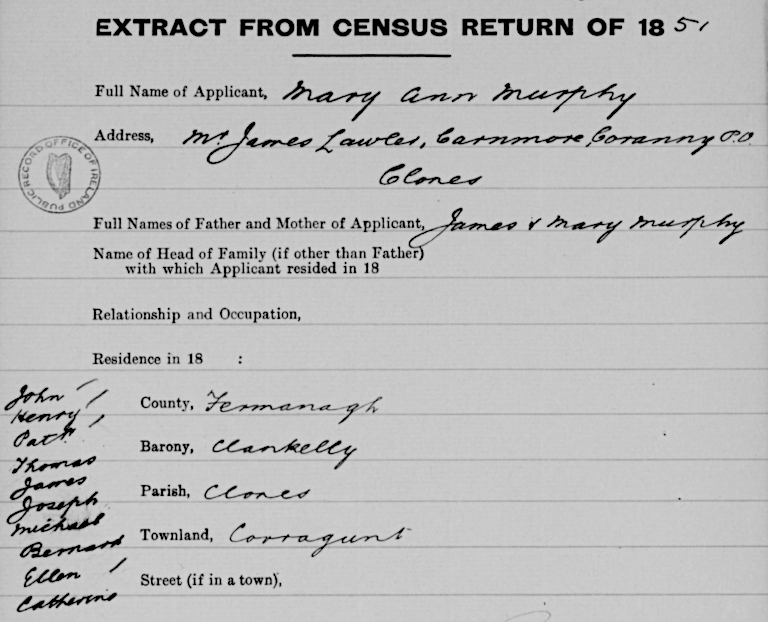 EXTRACT FROM CENSUS RETURN OF 1851
Full Name of Applicant, Mary Ann Murphy
Address, Mr James Lawler, Carnmore, Coranny P.O.
Clones
PUBLIC RECORD OFFICE OF IRELAND
Full Names of Father and Mother of Applicant, James & Mary Murphy
Name of Head of Family (if other than Father)
with which Applicant resided in 18
Relationship and Occupation,
Residence in 18 :
John
County, Fermanagh
Henry
Patk
Barony, Clankelly
Thomas
James
Parish, Clones
Joseph
Michael
Townland, Corragunt
Bernard
Ellen
Street (if in a town),
Catherine